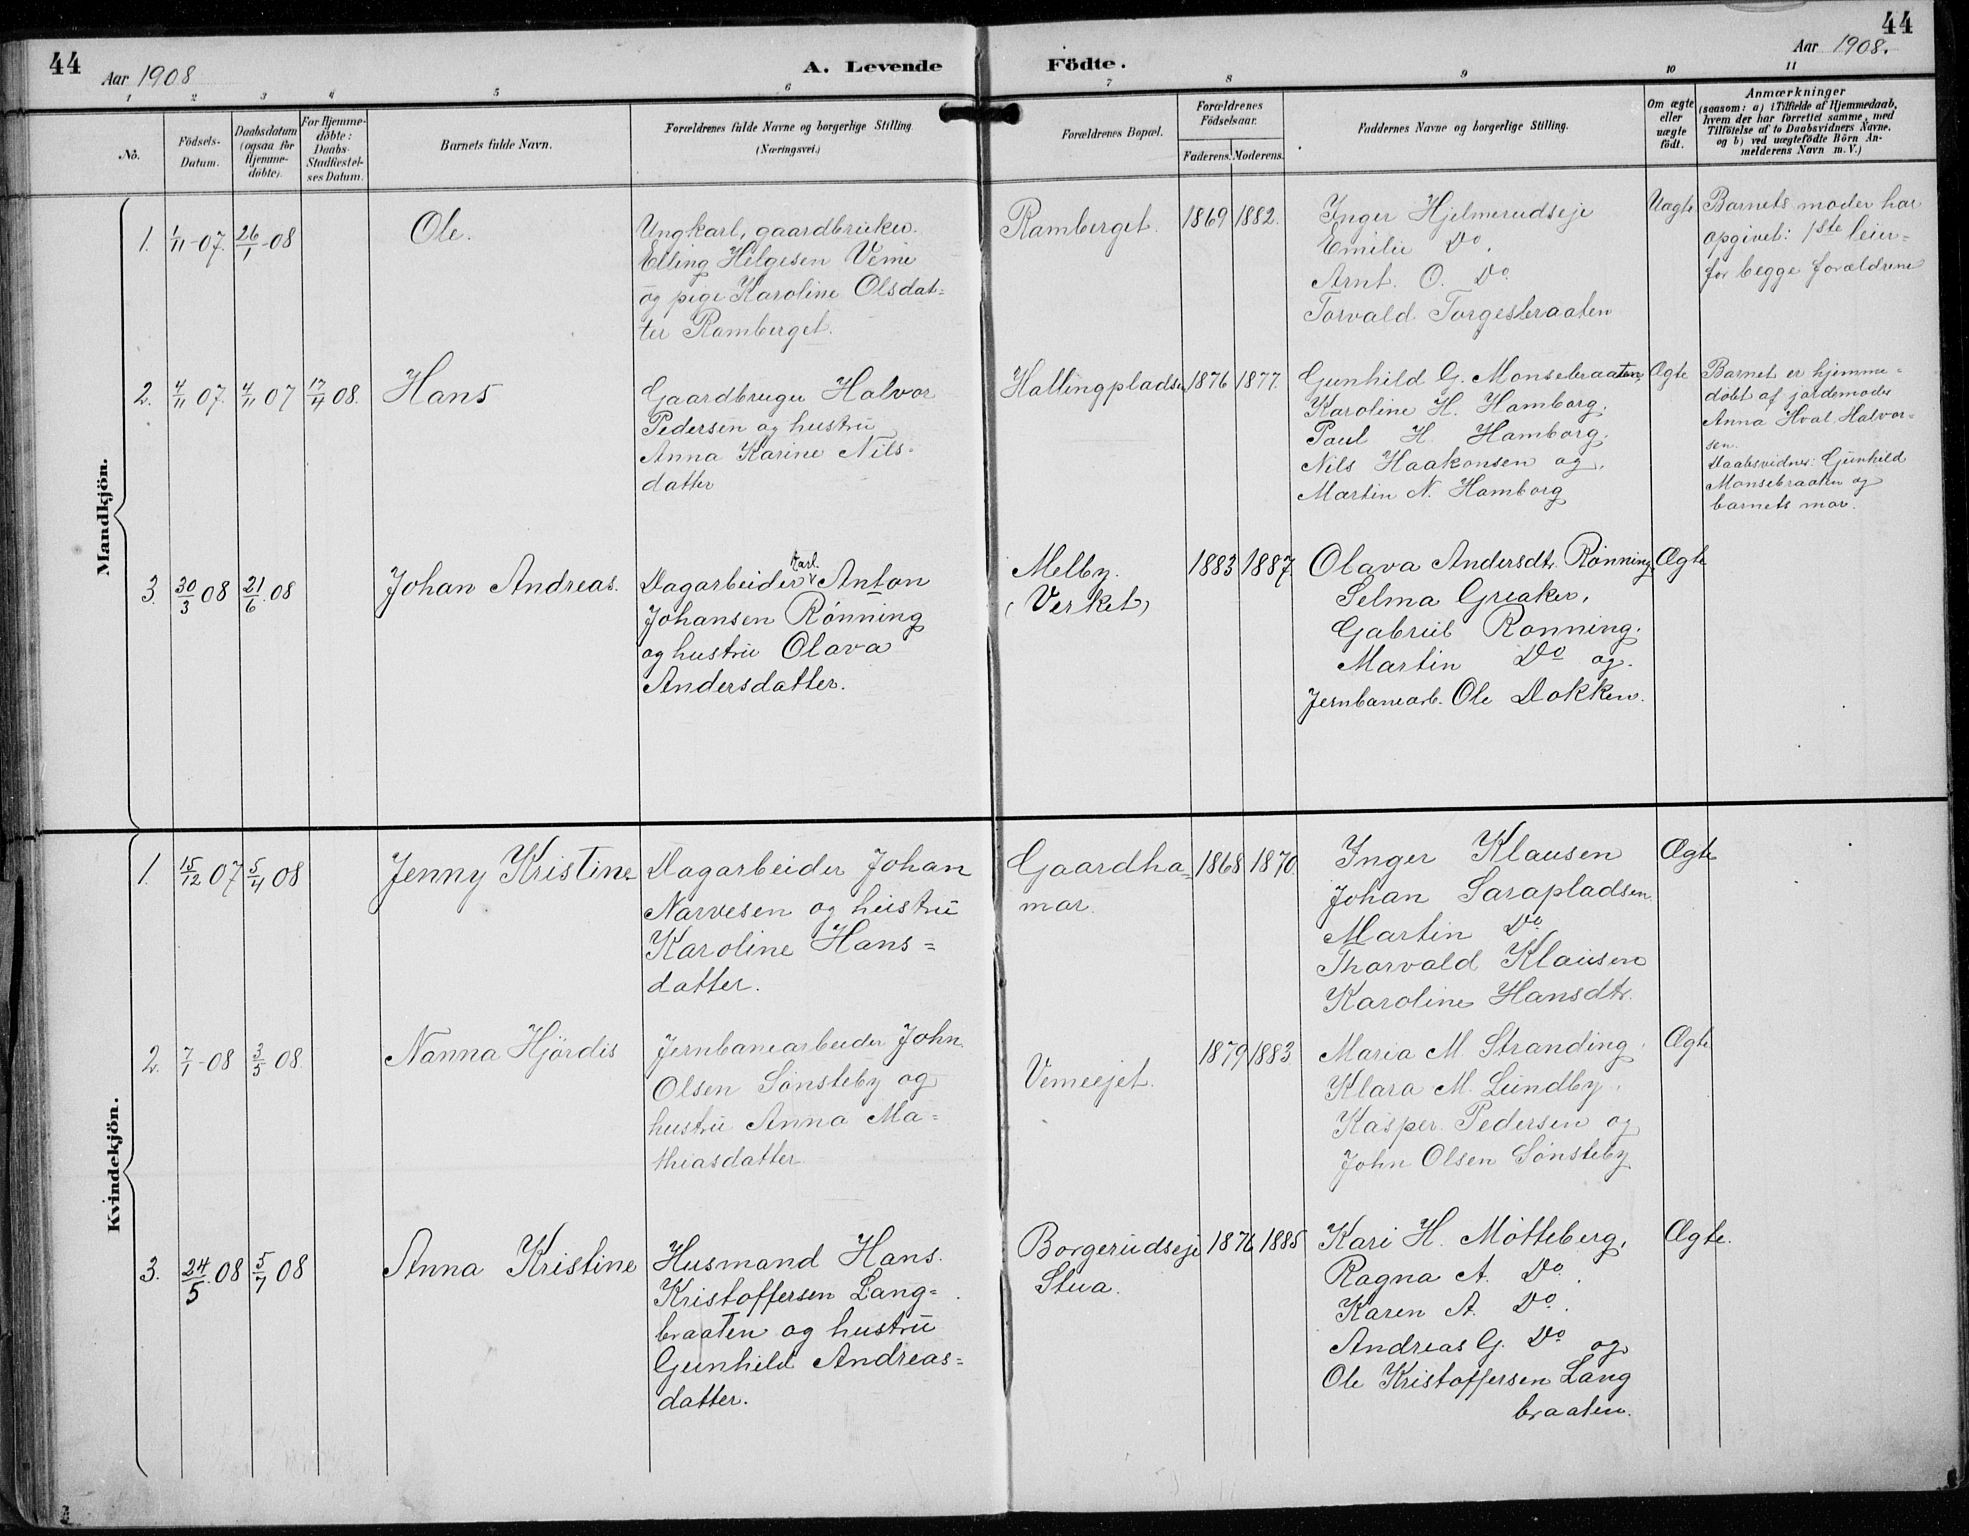 44
Aar 1908
A. Levende
Födte.
Aar 1908.
44
1 2 3 4 5 6 7 8 9 10 11
No.
Födsels-
Datum.
Daabsdatum
(ogsaa for
Hjemme-
döbte).
For Hjemme-
döbte:
Daabs-
Stadfæstel-
ses Datum.
Barnets fulde Navn.
Forældrenes fulde Navne og borgerlige Stilling
(Næringsvei.)
Forældrenes Bopæl.
Forældrenes
Födselsaar.
Faderens. Moderens.
Faddernes Navne og borgerlige Stilling.
Om ægte
eller
uægte
födt.
Anmærkninger
(saasom: a) i Tilfælde af Hjemmedaab,
hvem der har forrettet samme, med
Tilföielse af to Daabsvidners Navne,
og b) ved uægtefödte Börn An-
melderens Navn m. V.)
Mandkjön.
1. 1/11-07. 26/1-08
Ole.
Ungkarl, gaardbruker
Elling Helgesen Veme
og pige Karoline Olsdat-
ter Ramberget.
Ramberget.
1869 1882.
Inger Hjelmerudseje
Emilie Do.
Arnt. O. Do
Torvald Torgesbraaten
Uægte
Barnets moder har
opgivet: 1ste leier-
for begge forældrene
2. 4/11 07. 4/11 07 17/4 08.
Hans
Gaardbruger Halvor
Pedersen og hustru
Anna Karine Nils-
datter
Hallingpladsen
1876 1877.
Gunhild G. Monsebraaten,
Karoline H. Hamborg.
Paul H. Hamborg.
Nils Haakonsen og,
Martin N. Hamborg
Ægte
Barnet er hjemme-
døbt af jordemoder
Anna Hval Halvor-
sen.
Daabsvidner: Gunhild
Monsebraaten og
barnets mor.
3. 30/3 08 21/6 08
Johan Andreas.
Karl
Dagarbeider Anton
Johansen Rønning
og hustru Olava
Andersdatter.
Melby.
(Verket)
1883 1887.
Olava Andersdtr. Rønning
Selma Greaker,
Gabriel Rønning.
Martin Do og.
Jernbanearb. Ole Dokken.
Ægte
Kvindekjön.
1. 15/12 07 5/4 08
Jenny Kristine
Dagarbeider Johan
Narvesen og hustru
Karoline Hans=
datter.
Gaardha=
mar.
1868 1870.
Inger Klausen
Johan Sarapladsen
Martin Do
Thorvald Klausen
Karoline Hansdtr.
Ægte
2. 7/1-08 3/5 08
Nanna Hjørdis
Jernbanearbeider John
Olsen Sønsteby og
hustru Anna Ma-
thiasdatter
Vemeejet.
1879 1883
Maria M. Stranding.
Klara M. Lundby.
Kasper Pedersen og
John Olsen Sønsteby
Ægte
3. 24/5 08 5/7 08
Anna Kristine
Husmand Hans
Kristoffersen Lang=
braaten og hustru
Gunhild Andreas=
datter.
Borgerudseje
Stua.
1876 1885
Kari H. Møtteberg,
Ragna A. Do.
Karen A. Do.
Andreas G. Do og
Ole Kristoffersen Lang
braaten.
Ægte.